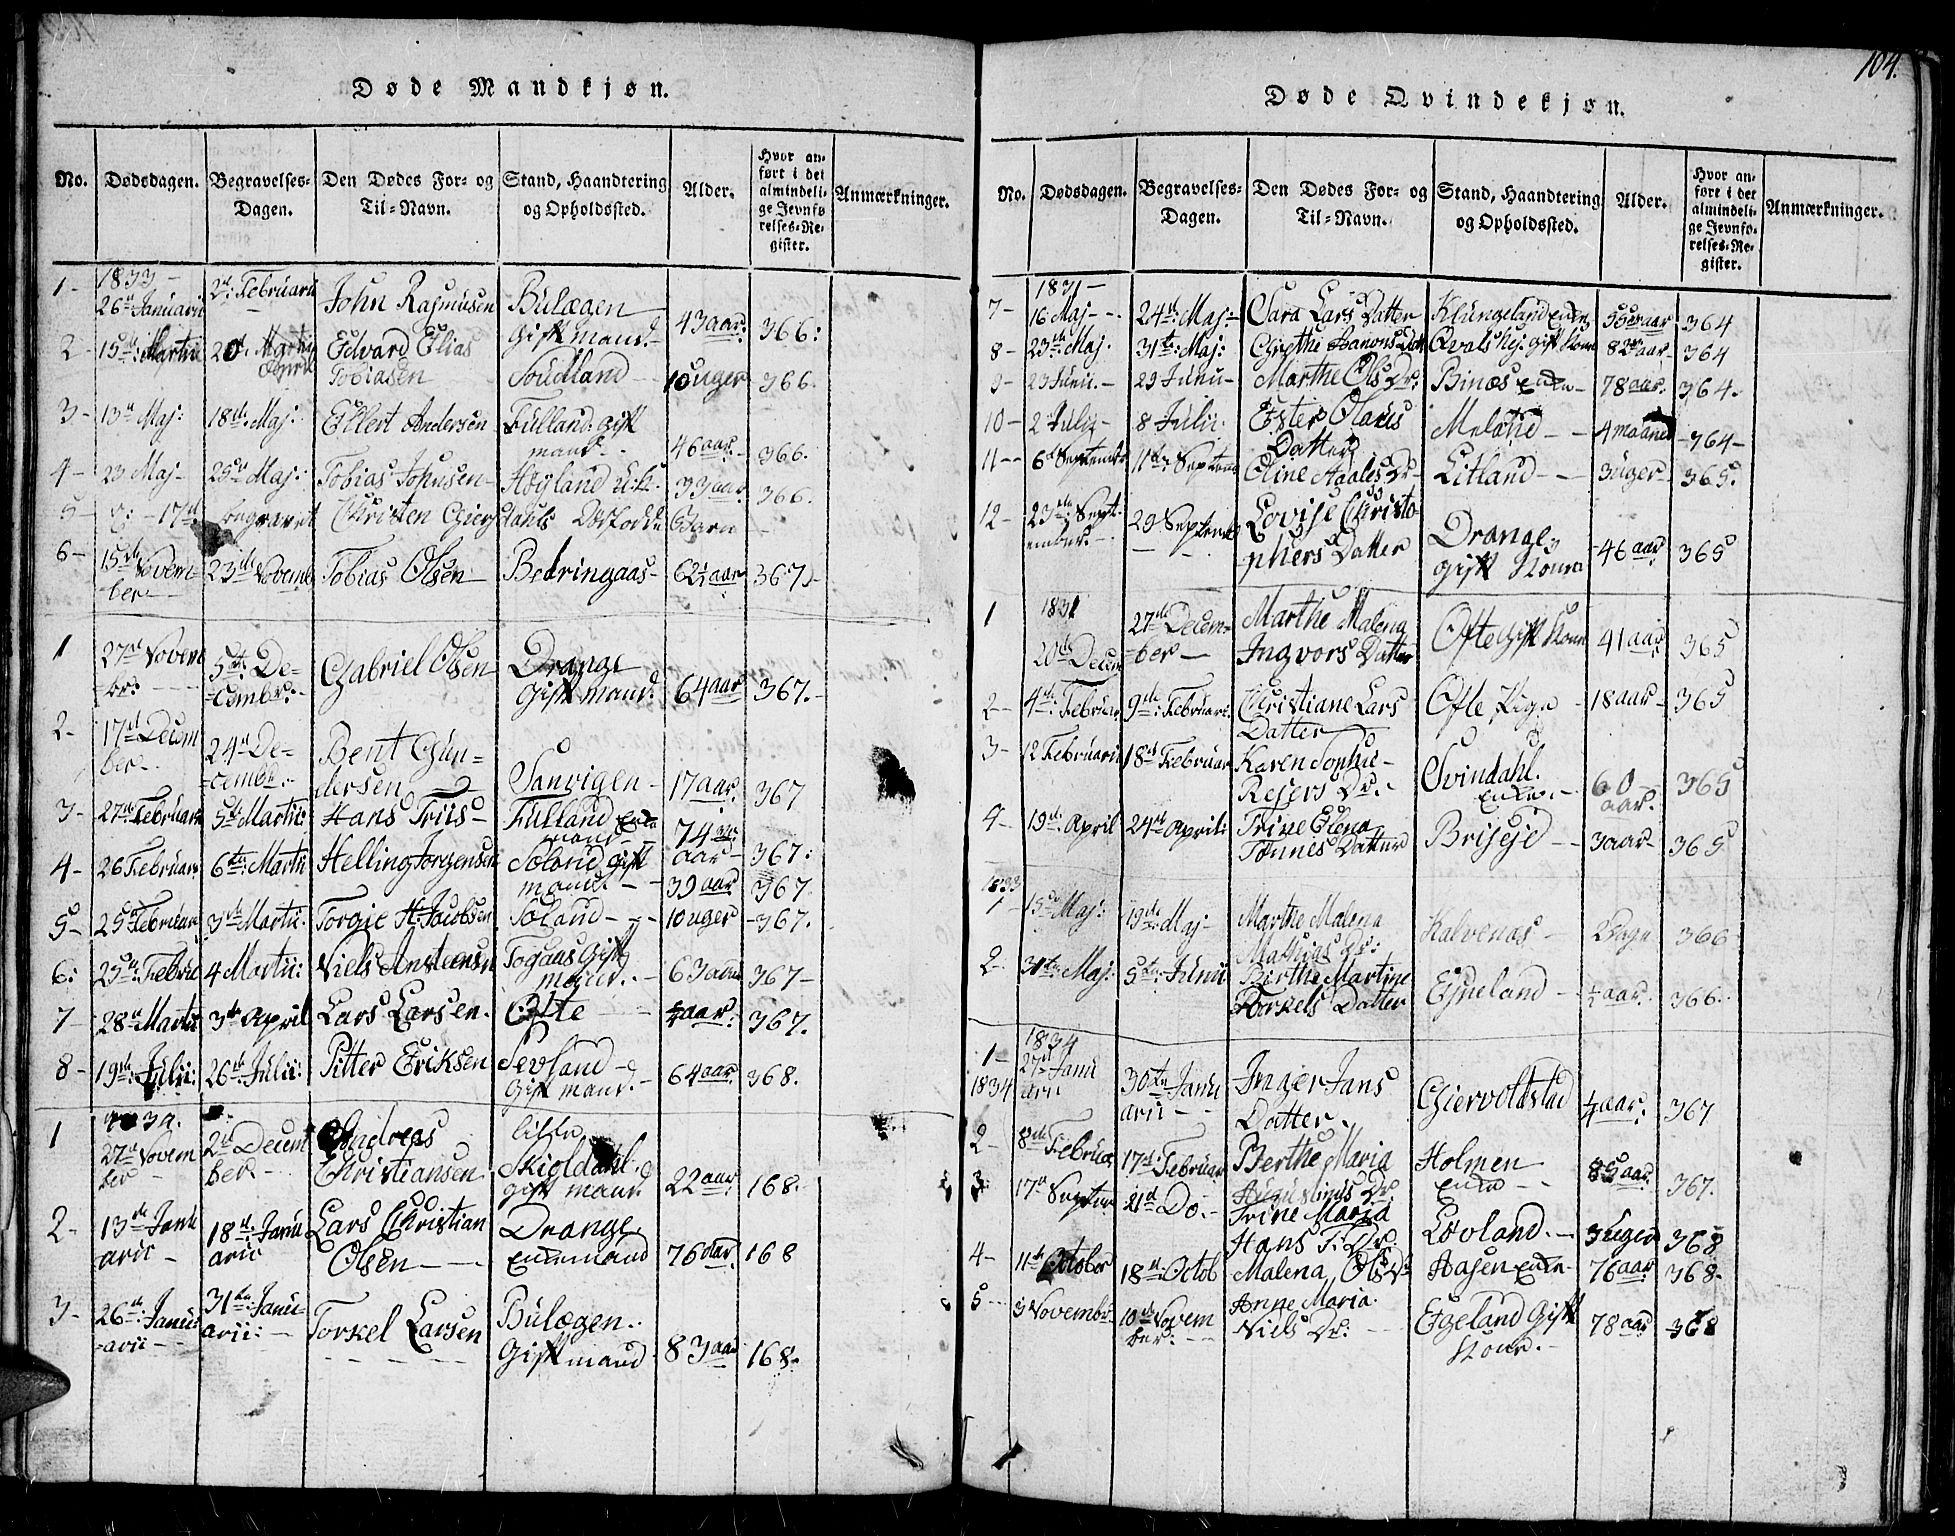 104.
Døde Mandkjøn.
No. Dødsdagen. Begravelses-Dagen. Den Dødes For- og Til-Navn. Stand, Haandtering og Opholdssted. Alder. Hvor anført i det almindelige Jevnførelses-Register. Anmærkninger.
1- 1833- 26de Januarii 2den Februarii John Rasmusen Bulægen Gift mand. 43 aar. 366.
2- 15de Martii April Edvard Elias Tobiasen Soudland 10 uger 366.
3- 13de Maj: 18de Maj: Ellert Andersen Fulland. Gift mand- 46 aar- 366.
4- 23 Maj- 29de Maj: Tobias Johnsen- Høyland 33 aar 366.
5- 17de begravet Christen Giers
6- 15de Novem-ber- 23de Novemb Tobias Olsen Bedringaas- 62½ aar 367
1 27de Novembr: 5te De-cembr:- Gabriel Olsen Drange Gift mand. 64 aar 367.-
2- 17de Decem ber- 24de De-cemb:- Bent Gun-dersen Sanvigen- 17 aar. 367
3- 27de Februarii 5te Martii: Hans Friis- Fulland Enke mand- 74 aar- 367:
4- 26 Februar 6te Martii Helling Jorgensen Soland Gift mand.- 39 aar 367.
5- 25de Februar 3de Martii: Torgie H. Jacobsen Soland- 10 uger- 367.
6: 25de Febru 4 Martii: Niels Ansteensn Togaas Gift mand.- 63 aar 367-
7- 28de Martii 3de April Lars Larsen. Ofte- aar: 367.
8- 19de Julii: 26de Julii: Pitter Eriksen Sevland- Gift mand.- 64 aar. 368.
1 27de Novem ber- 2den Decem ber.- Andreas Christiansen lille Skioldahl. gift mand 22 aar. 168.
2- 13de Janu arii- 18de Janu arii Lars Christian Olsen- Drange. Enkemand 76 aar. 168
3- 26de Janu-arii- 31te Janu-arii:- Torkel Larsen Bulægen. Gift mand. 83 aar 168.
Døde Qvindekjøn.
No. Dødsdagen. Begravelses-Dagen. Den Dødes For- og Til-Navn. Stand, Haandtering og Opholdssted. Alder. Hvor anført i det almindelige Jevnførelses-Register. Anmærkninger.
7- 1831- 16 Maj- 24de Maj:- Sara Lars Datter Klungeland Enke 364
8- 23de Maj. 31te Maj: Grethe Qvalshej. gift Kone 82 aar- 364
9- 23 Junii.- 29 Junii- Marthe Ols Dr: Binæs Enke- 78 aar. 364.
10- 2 Julii- 8 Julii: Ester Olaus Datter Meland- 4 maaned -364-
11- 6te Septembr 11te Septem Eline Aanles Dr- Litland- 3 uger- 365.
12- 23de Sept-ember.- 29 Septemb Lovise Christo-phers Datter Drange, gift Kone -46 aar 365
1 1831 20de Decem 27de Decem-ber- Marthe Malena Ingvors Datter Ofte Gift Kone 41 aar. 365
2- 4de Februar 9de Februari. Christiane Lars Datter Ofte Pige- 18 aar- 365
3- 12 Februarii 18de Februar Karen Sophie- Rejers Dr.- Svindahl. Enke.- 60 aar. 365
4- 19de April 24de Aprili Trine Elena Tønnes Datter Briseje- 3 aar- 365
1833 1- 15de Maj: 19de Maj- Marthe Malena Mathias Dr: Kalvenæs- Dage 366
2- 31te Maj: 5te Junii Birthe Martine Torkels Datter Ejneland- ½ aar. 366.
1- 1834 1834 27de Janu arii 30te Janu arii- Inger Jans Datter. Giervoldstad aar. 367
2- 8de Februa 17de Februar Berthe Maria Augustinus Dr. Holmen Enke- 85 aar. 367.
3: 17de Septem 21de Do.- Trine Maria Hans T. Dr. Lovland.- 3 uger 368
4- 11te October 18de Octob Malena Ols Dr Hasen Enke- 76 aar. 368.
5- 3 Novembr- 10de Novem ber:- Anne Maria. Niels Dr:- Egeland Gift Kone.- 78 aar 368